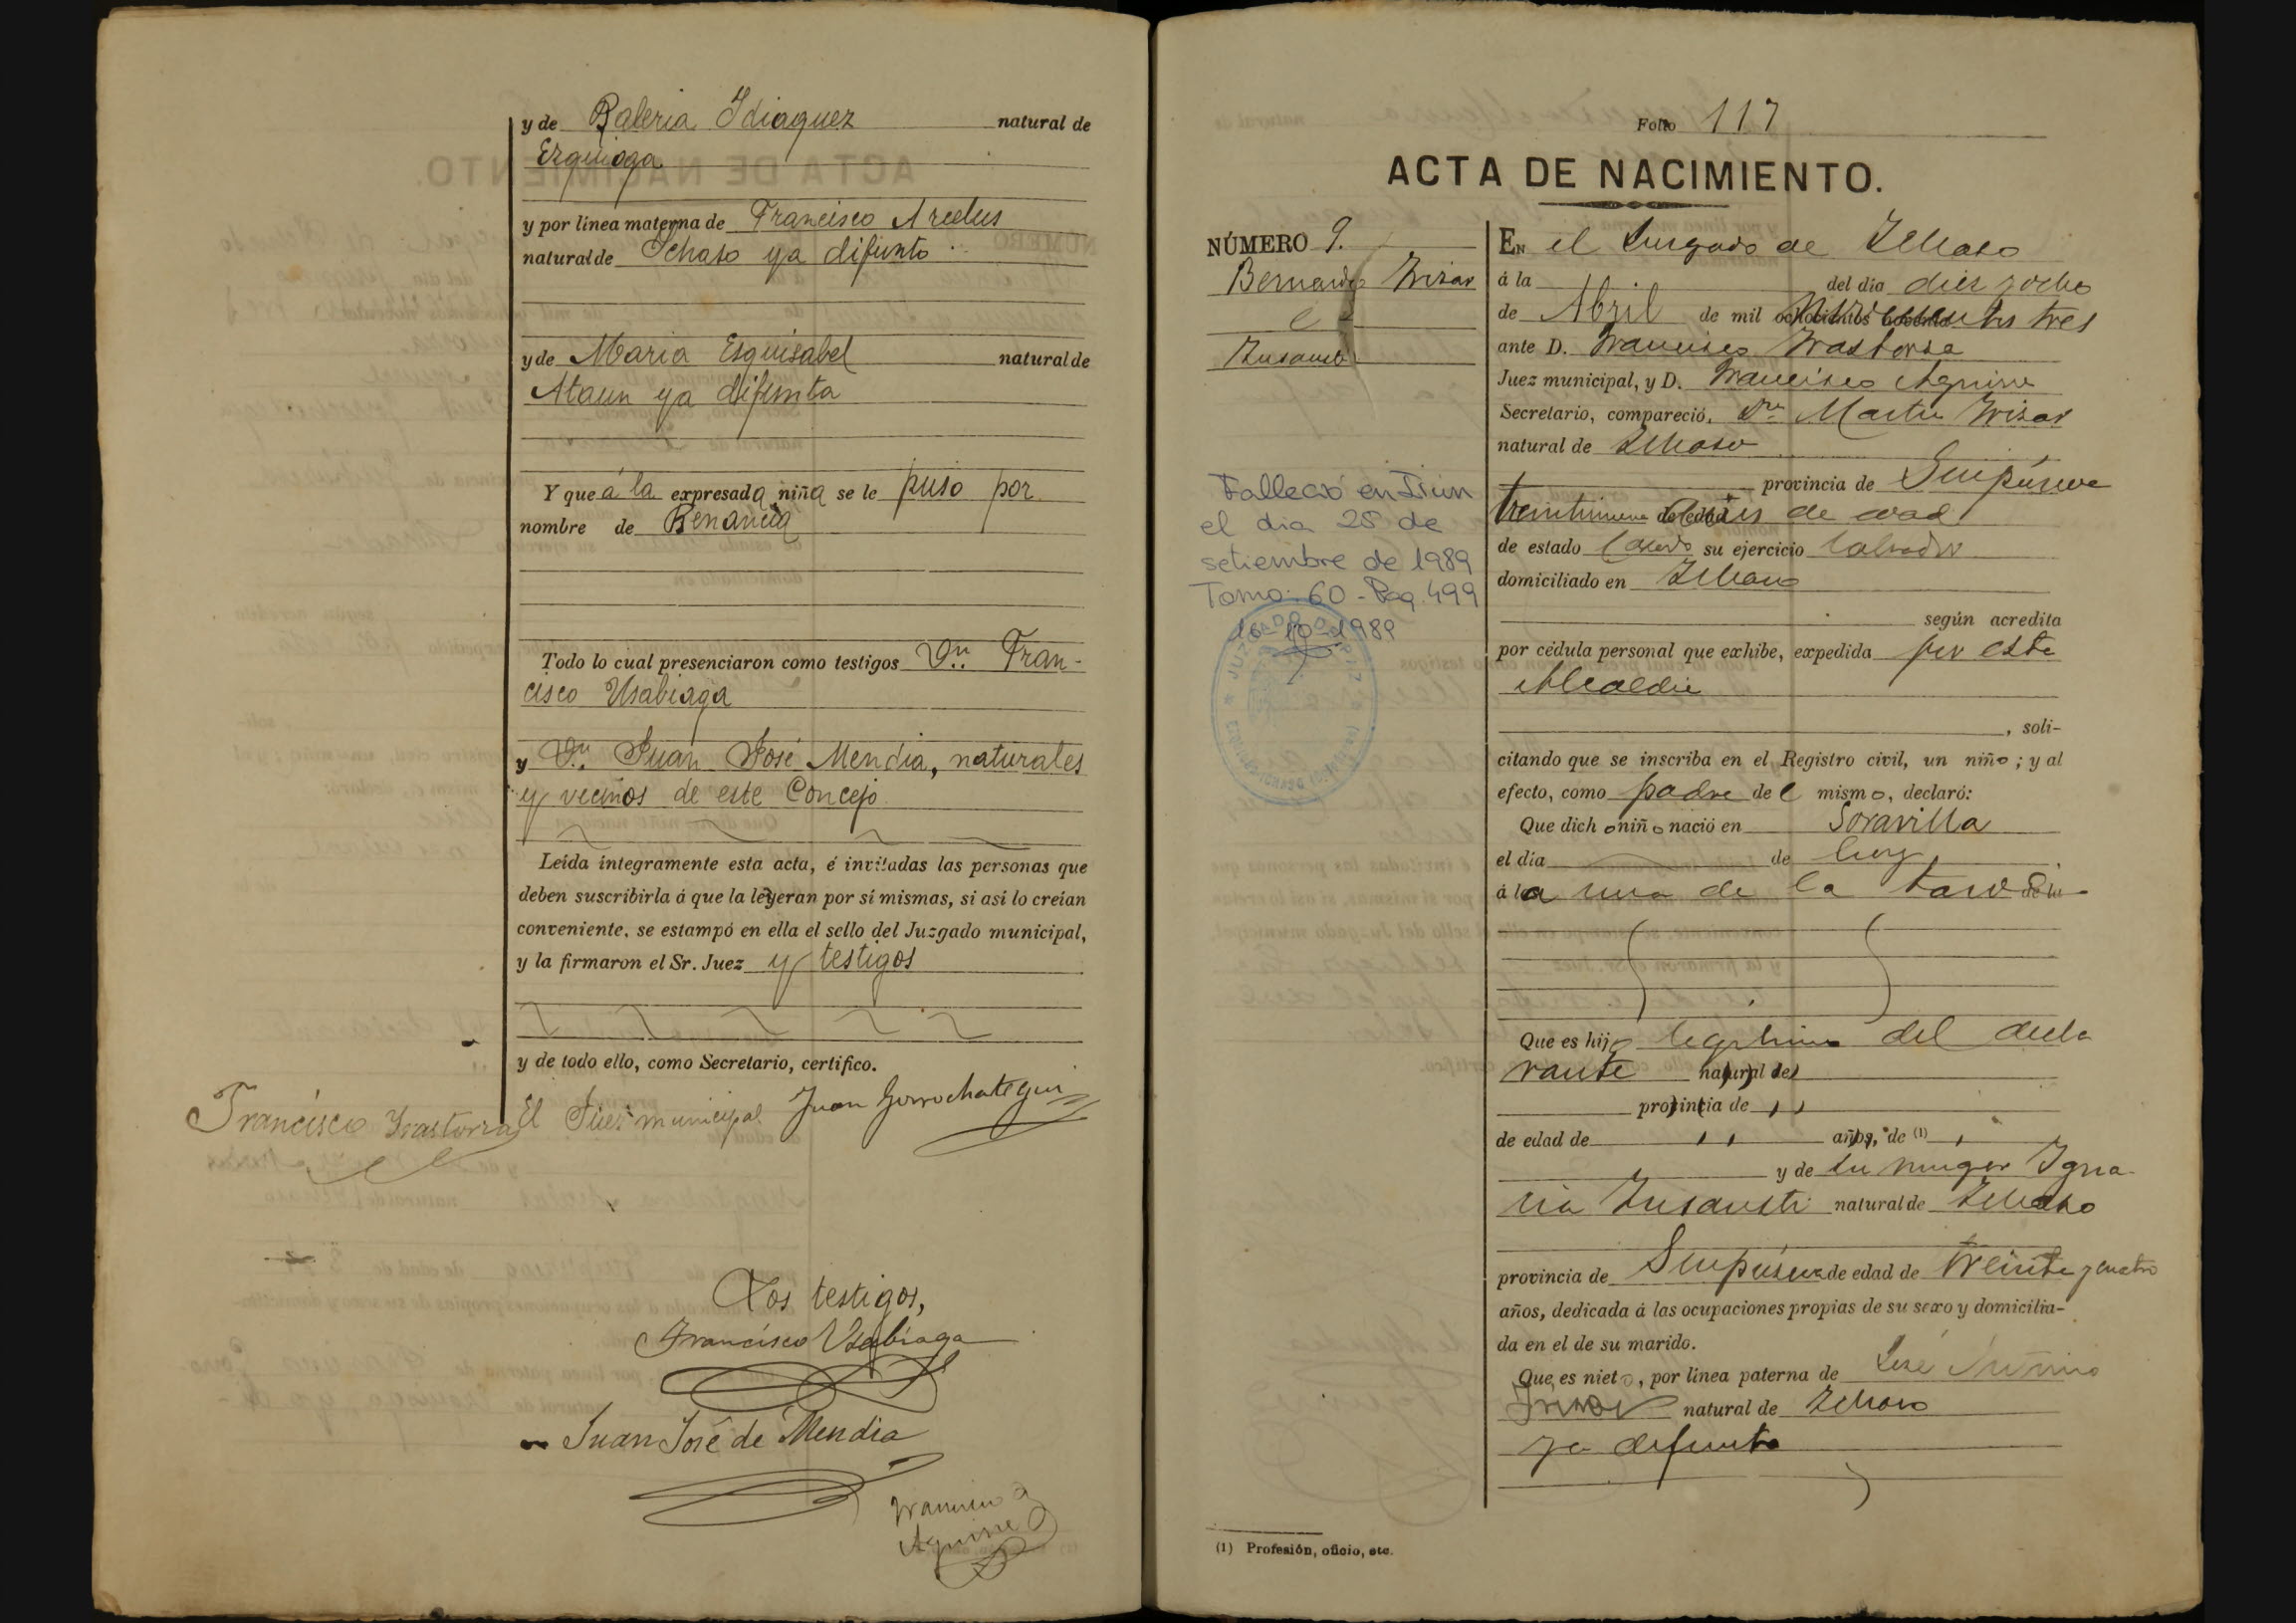 y de Baleria Idiaquez natural de
Ezquioga
y por línea materna de Francisco Arcelus
natural de Ichaso ya difunto
y de Maria Esquisabel natural de
Ataun ya difunta
Y que á la expresada niña se le puso por
nombre de Benancia
Todo lo cual presenciaron como testigos Dn. Fran-
cisco Usabiaga
y Dn. Juan José Mendia, naturales
y vecinos de este Concejo
Leída íntegramente esta acta, é invitadas las personas que
deben suscribirla á que la leyeran por sí mismas, si así lo creían
conveniente, se estampó en ella el sello del Juzgado municipal,
y la firmaron el Sr. Juez y testigos
y de todo ello, como Secretario, certifico.
Francisco Irastorza El Juez municipal Juan Gorrochategui
Los testigos,
Francisco Usabiaga
Juan José de Mendia
Francisco
Aguirre
Folio 117
ACTA DE NACIMIENTO.
NÚMERO 9.
Bernardo Irizar
é
Insausti
Falleció en Irún
el dia 28 de
setiembre de 1989
Tomo: 60 - Pag. 499
16-10-1989
JUZGADO DE PAZ
En el Jusgado de Ichaso
á la del día diez y ocho
de Abril de mil novecientos tres
ante D. Francisco Irastorza
Juez municipal, y D. Francisco Aguirre
Secretario, compareció, Dn. Martin Irizar
natural de Ichaso
provincia de Guipúzcoa
treintinueve de edad
de estado Casado su ejercicio labrador
domiciliado en Ichaso
según acredita
por cédula personal que exhibe, expedida por esta
Alcaldia
, soli-
citando que se inscriba en el Registro civil, un niño; y al
efecto, como padre del mismo, declaró:
Que dicho niño nació en Soravilla
el día de hoy
á la una de la tarde
Que es hijo legitimo del decla
rante natural de
provincia de
de edad de años, de (1)
y de su muger Igna-
cia Insausti natural de Ichaso
provincia de Guipúzcoa de edad de treinta y cuatro
años, dedicada á las ocupaciones propias de su sexo y domicilia-
da en el de su marido.
Que es nieto, por línea paterna de José
Irizar natural de Ichaso
ya difunto
(1) Profesión, oficio, etc.